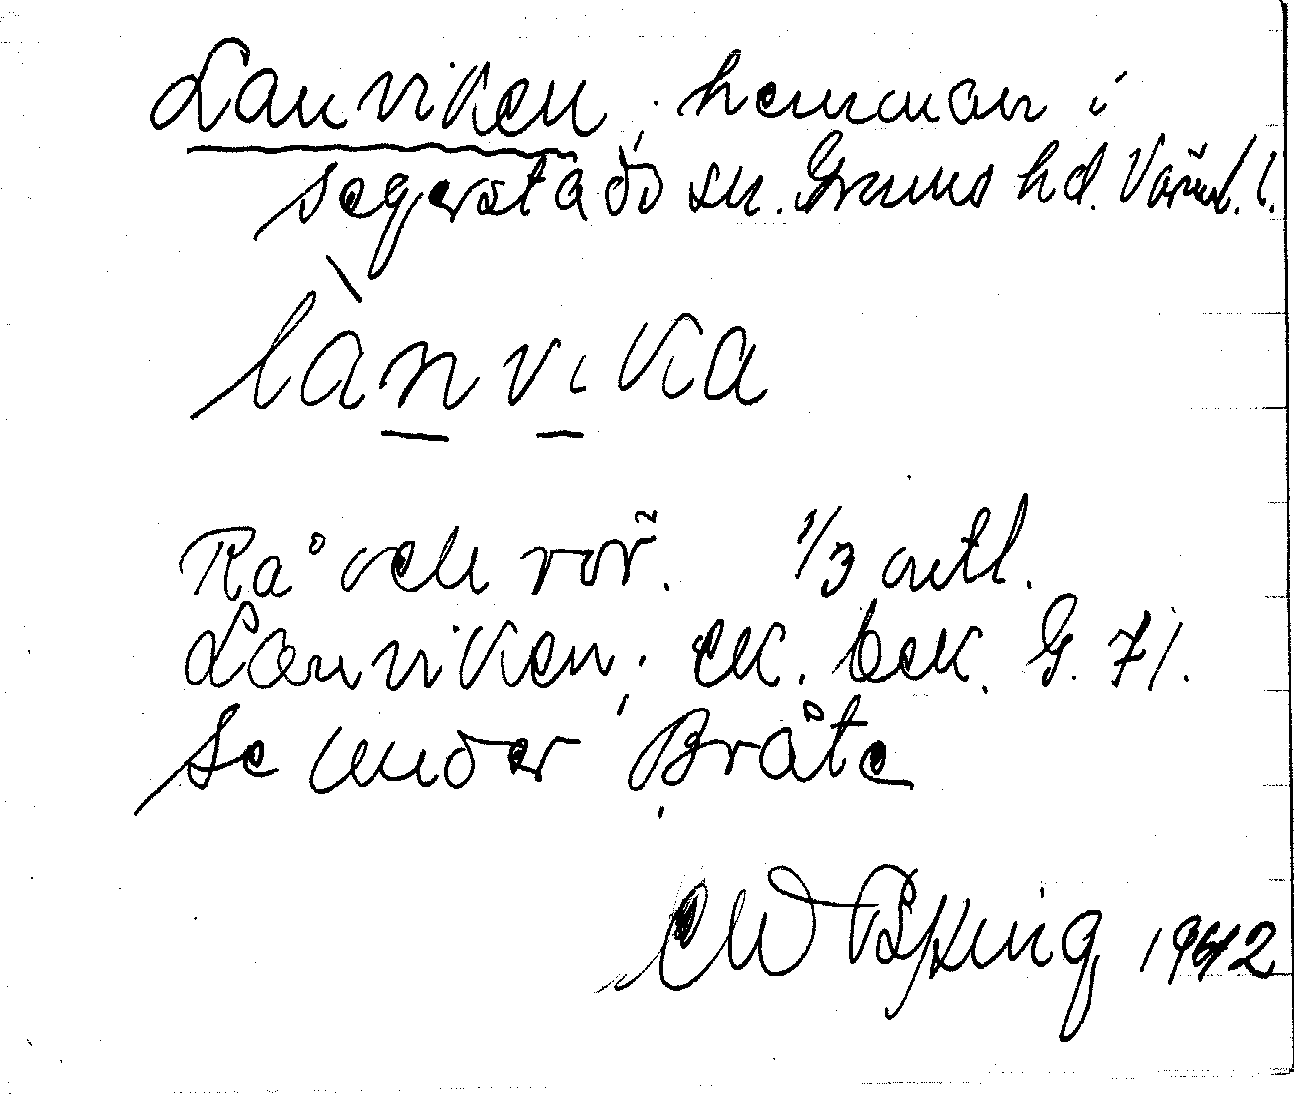 Lanviken, hemman i
Segerstads sn. Grums hd. Värml. l.
lànvika
Rå och rör². 1/3 mtl.
Lanviken, ek. bek. G. 71.
Se under Bråte
1942